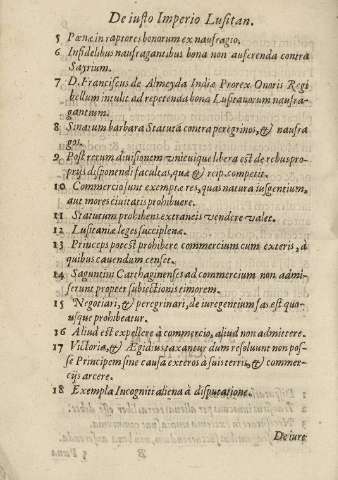 De iusto Imperio Lusitan.
5 Pœnæ in raptores bonorum ex naufragio.
6 Infidelibus naufragantibus bona non auferenda contra
Sayrium.
7 D. Franciscus de Almeyda Indiæ Prorex Onoris Regi
bellum intulit ad repetenda bona Lusitanorum naufra-
gantium.
8 Sinarum barbara Statuta contra peregrinos, & naufra
gos.
9 Post rerum diuisionem vnicuique libera est de rebus pro-
prijs disponendi facultas, quæ & reip. competit.
10 Commercio sunt exemptæ res, quas natura ius gentium,
aut mores ciuitatis prohibuere.
11 Statutum prohibens extraneis vendere valet.
12 Lusitaniæ leges succiplenæ.
13 Princeps potest prohibere commercium cum exteris, à
quibus cauendum censet.
14 Saguntini Carthaginenses ad commercium non admi-
serunt propter subiectionis timorem.
15 Negotiari, & peregrinari, de iure gentium fas est quo-
usque prohibeatur.
16 Aliud est expellere à commercio, aliud non admittere.
17 Victoria, & Ægidius taxantur dum resoluunt non pos-
se Principem sine causa exteros à suis terris, & commer-
cijs arcere.
18 Exempla Incogniti aliena à disputatione.
De iure